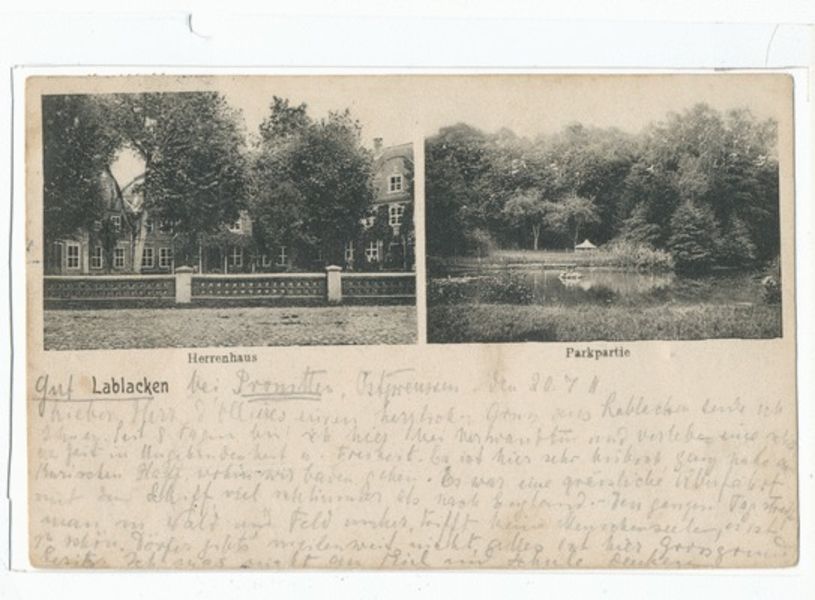 Herrenhaus
Parkpartie
Gut Lablacken bei Promitten, Ostpreussen. den 20. 7
Lieber Herr d'Ollières einen herzlichen Gruss aus Lablacken sende ich
Ihnen. Seit 8 Tagen bin ich hier bei Verwandten und verlebe eine
Zeit in Ungebundenheit u. Freiheit. Es ist hier sehr hübsch, ganz nahe am
Kurischen Haff, wohin wir baden gehen. Es war eine grässliche Überfahrt
mit dem Schiff viel schlimmer als nach England. Den ganzen Tag
man in Wald und Feld umher, trifft keine Menschenseelen, es ist
so schön. Dörfer giebts meilenweit nicht, alles ist hier Grossgrund
besitz. Ich mag nicht an und Schule denken